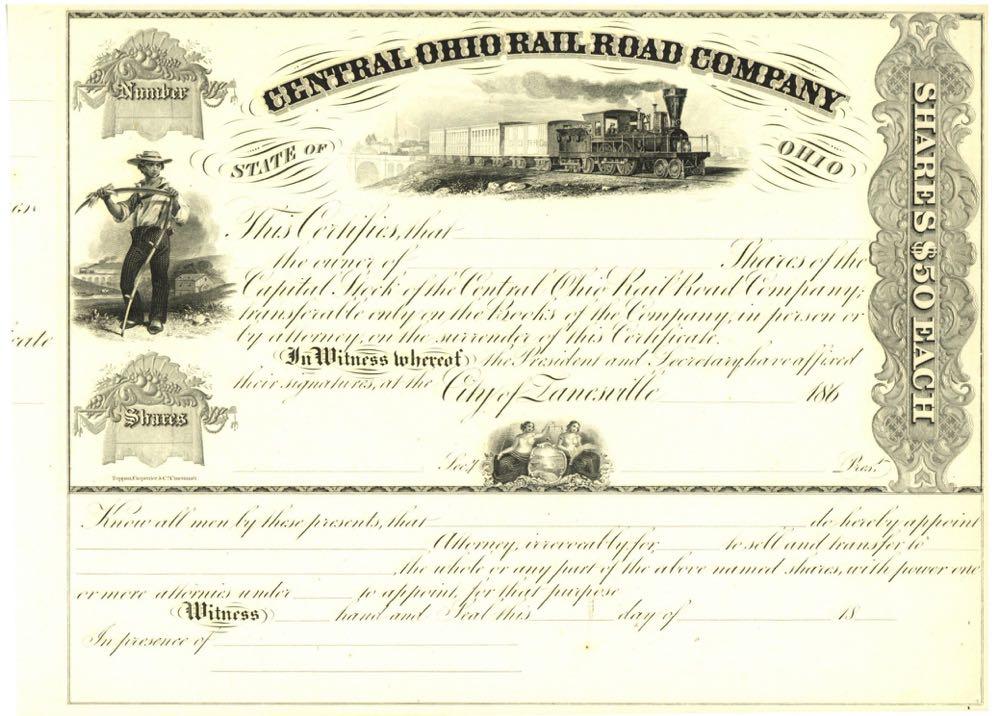 Number
CENTRAL OHIO RAIL ROAD COMPANY
STATE OF OHIO
SHARES $50 EACH
This Certifies, that
the owner of Shares of the
Capital Stock of the Central Ohio Rail Road Company;
transferable only on the Books of the Company, in person or
by attorney, on the surrender of this Certificate.
In Witness whereof the President and Secretary, have affixed
their signatures, at the City of Zanesville 186
Shares
Sec'y Pres.t
Toppan, Carpenter & Co. Cincinnati.
Know all men by these presents, that do hereby appoint
Attorney, irrevocably, for to sell and transfer to
, the whole or any part of the above named shares, with power one
or more attornies under to appoint, for that purpose
Witness hand and Seal this day of 18
In presence of